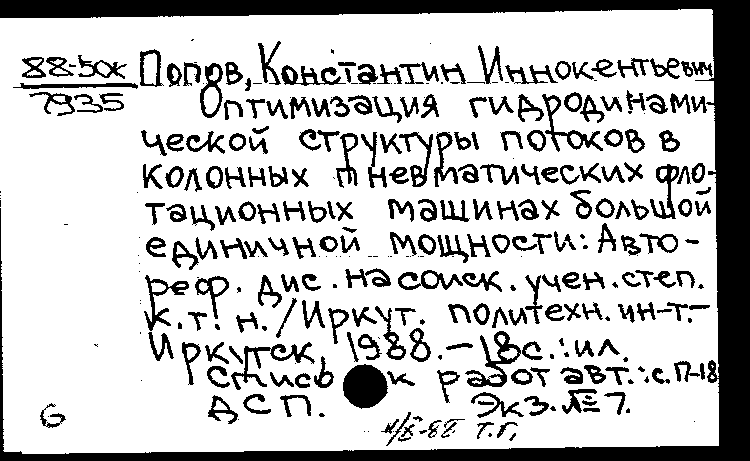 88-50к Попов, Константин Иннокентьевич
7935 Оптимизация гидродинами-
ческой структуры потоков в
колонных пневматических фло-
тационных машинах большой
единичной мощности: Авто-
реф. дис. на соиск. учен. степ.
к.т.н. / Иркут. политехн. ин-т.-
Иркутск, 1988. - 18с.: ил.
Список работ авт.: с. 17-18
ДСП. Экз. № 7.
6
-88 Т.Г.